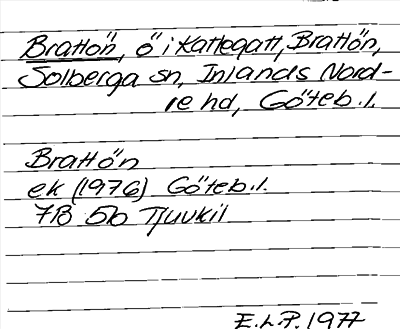 Brattön, ö i Kattegatt, Brattön,
Solberga sn, Inlands Nord-
re hd, Göteb.l.
Brattön
ek (1976) Göteb.l.
7B 5b Tjuvkil
E.L.P. 1977